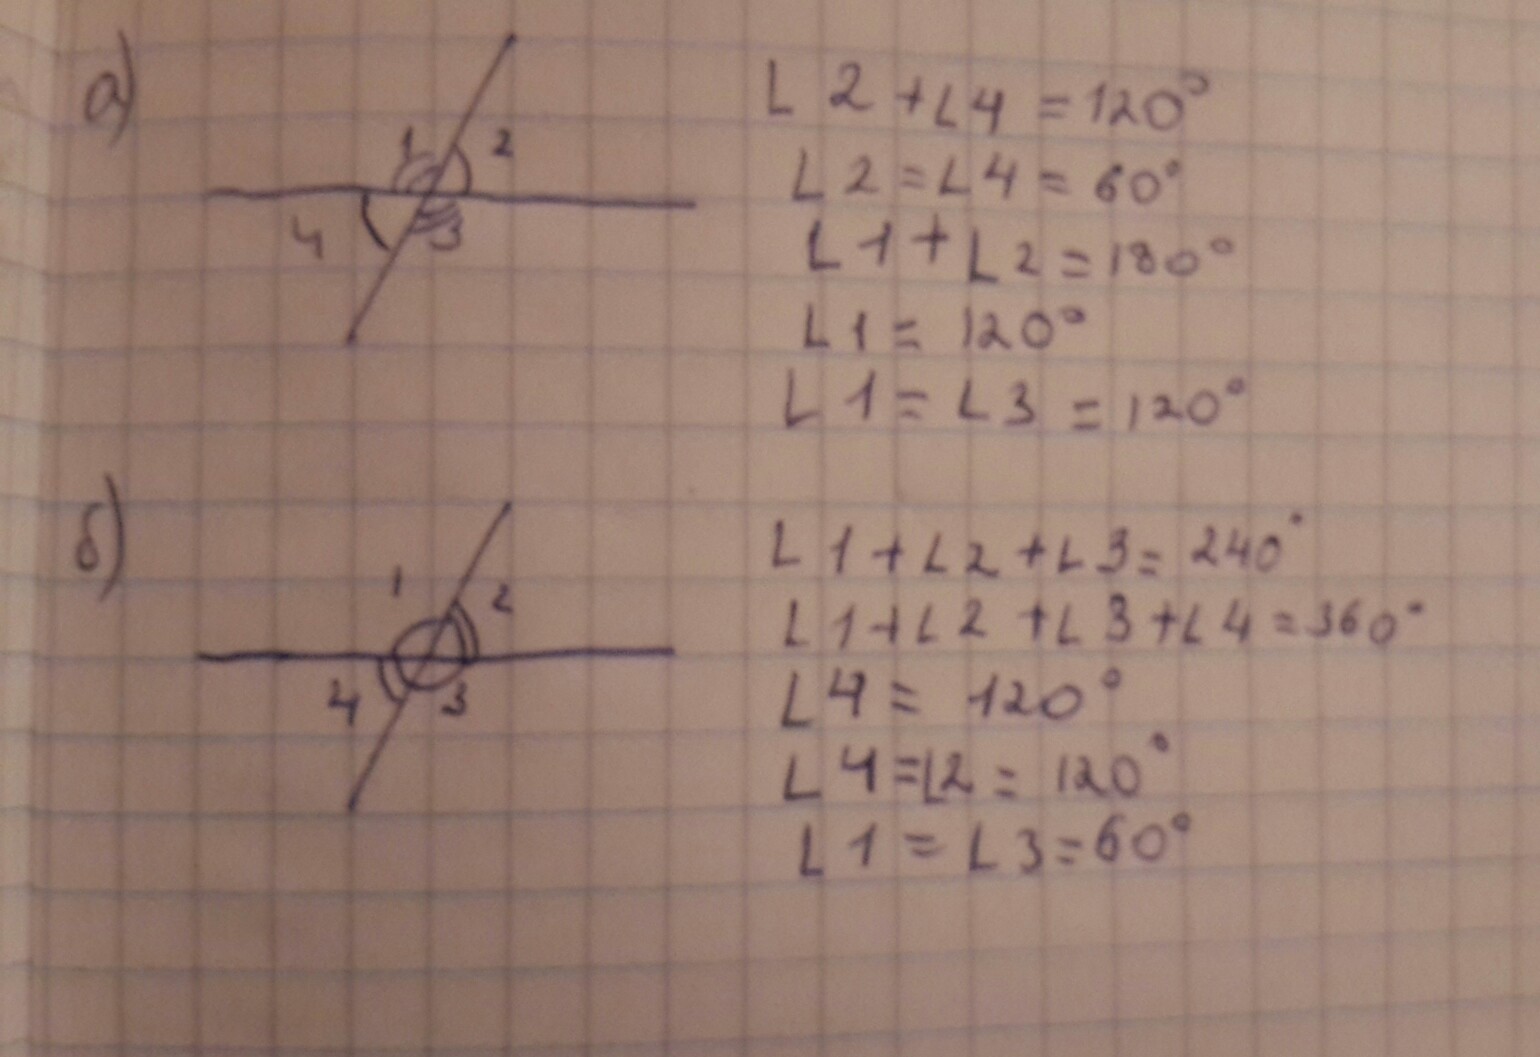 а)
1 2
4 3
∠2 + ∠4 = 120°
∠2 = ∠4 = 60°
∠1 + ∠2 = 180°
∠1 = 120°
∠1 = ∠3 = 120°
б)
1 2
4 3
∠1 + ∠2 + ∠3 = 240°
∠1 + ∠2 + ∠3 + ∠4 = 360°
∠4 = 120°
∠4 = ∠2 = 120°
∠1 = ∠3 = 60°